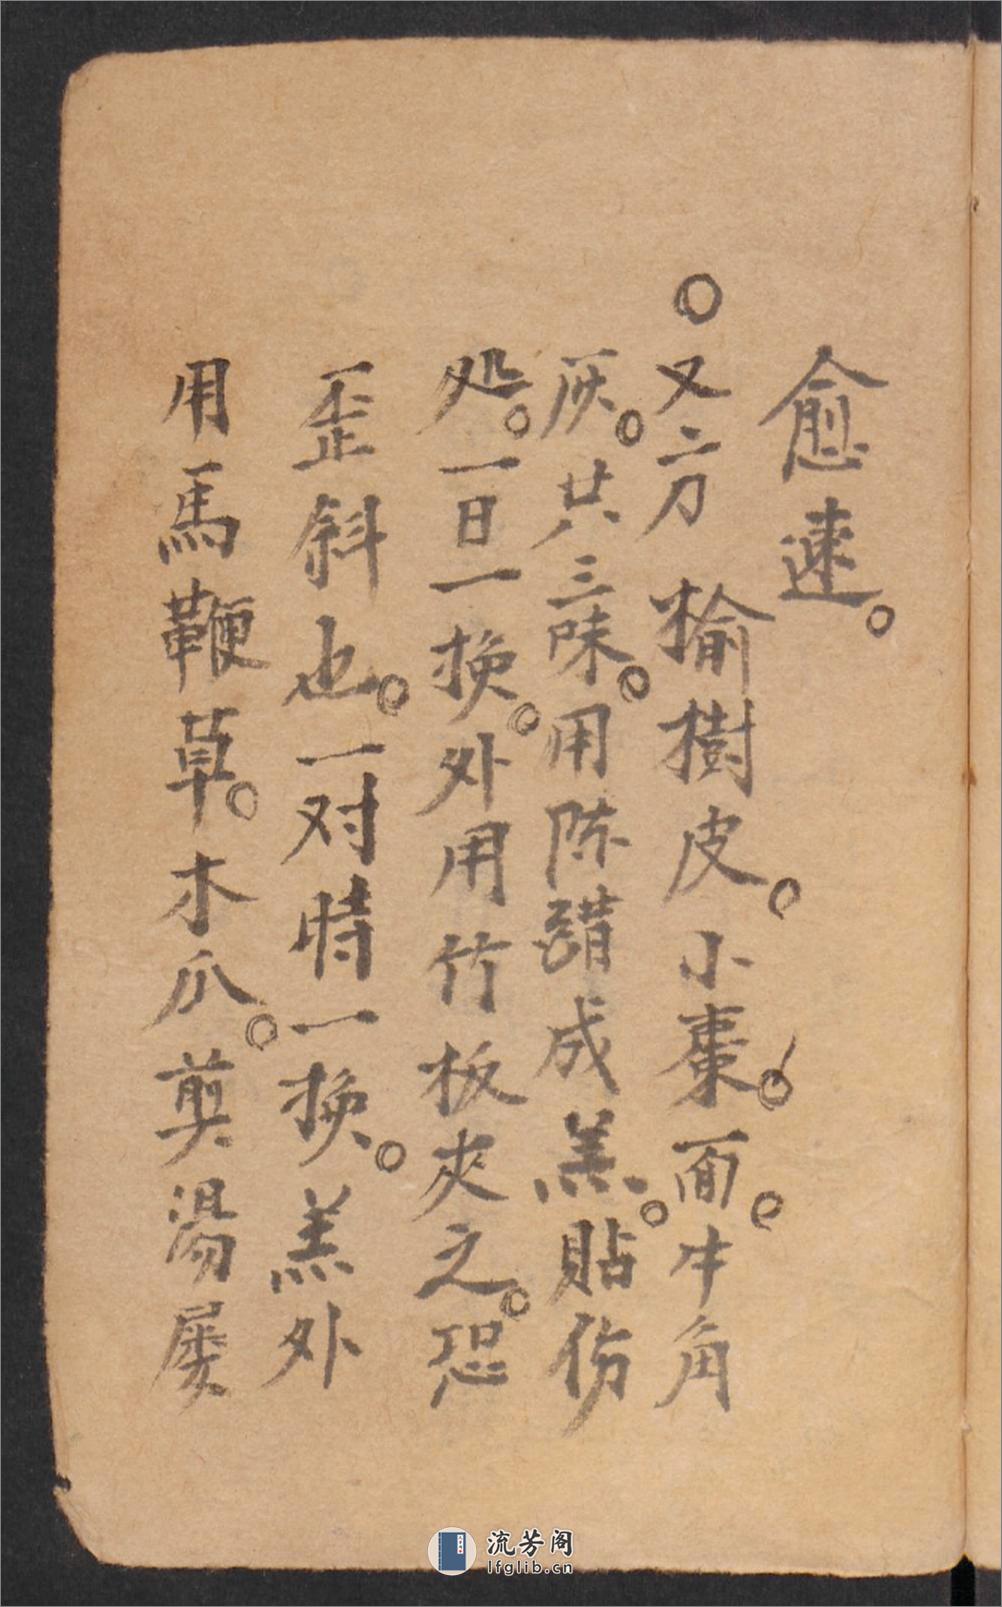 愈速。
○又方 榆樹皮。小棗。面。牛角
灰。共三味。用陈醋成羔。貼伤
处。一日一换。外用竹板夾之。恐
歪斜也。一对時一换。羔外
用馬鞭草。木瓜。煎湯屡
流芳阁
lfglib.cn